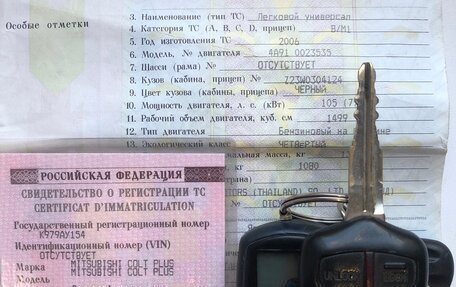 Особые отметки
3. Наименование (тип ТС) Легковой универсал
4. Категория ТС (A, B, C, D, прицеп) B/M1
5. Год изготовления ТС 2004
6. Модель, № двигателя 4A91 0023535
7. Шасси (рама) № ОТСУТСТВУЕТ
8. Кузов (кабина, прицеп) № Z23W0304124
9. Цвет кузова (кабины, прицепа) ЧЕРНЫЙ
10. Мощность двигателя, л. с. (кВт) 105 (7
11. Рабочий объем двигателя, куб. см 1499
12. Тип двигателя Бензиновый на
13. Экологический класс ЧЕТВЕРТЫЙ
масса, кг
1080
(THAILAND)
ОТСУТСТВУЕТ
РОССИЙСКАЯ ФЕДЕРАЦИЯ
СВИДЕТЕЛЬСТВО О РЕГИСТРАЦИИ ТС
CERTIFICAT D'IMMATRICULATION
Государственный регистрационный номер
К979АУ154
Идентификационный номер (VIN)
ОТСУТСТВУЕТ
Марка MITSUBISHI COLT PLUS
Модель MITSUBISHI COLT PLUS